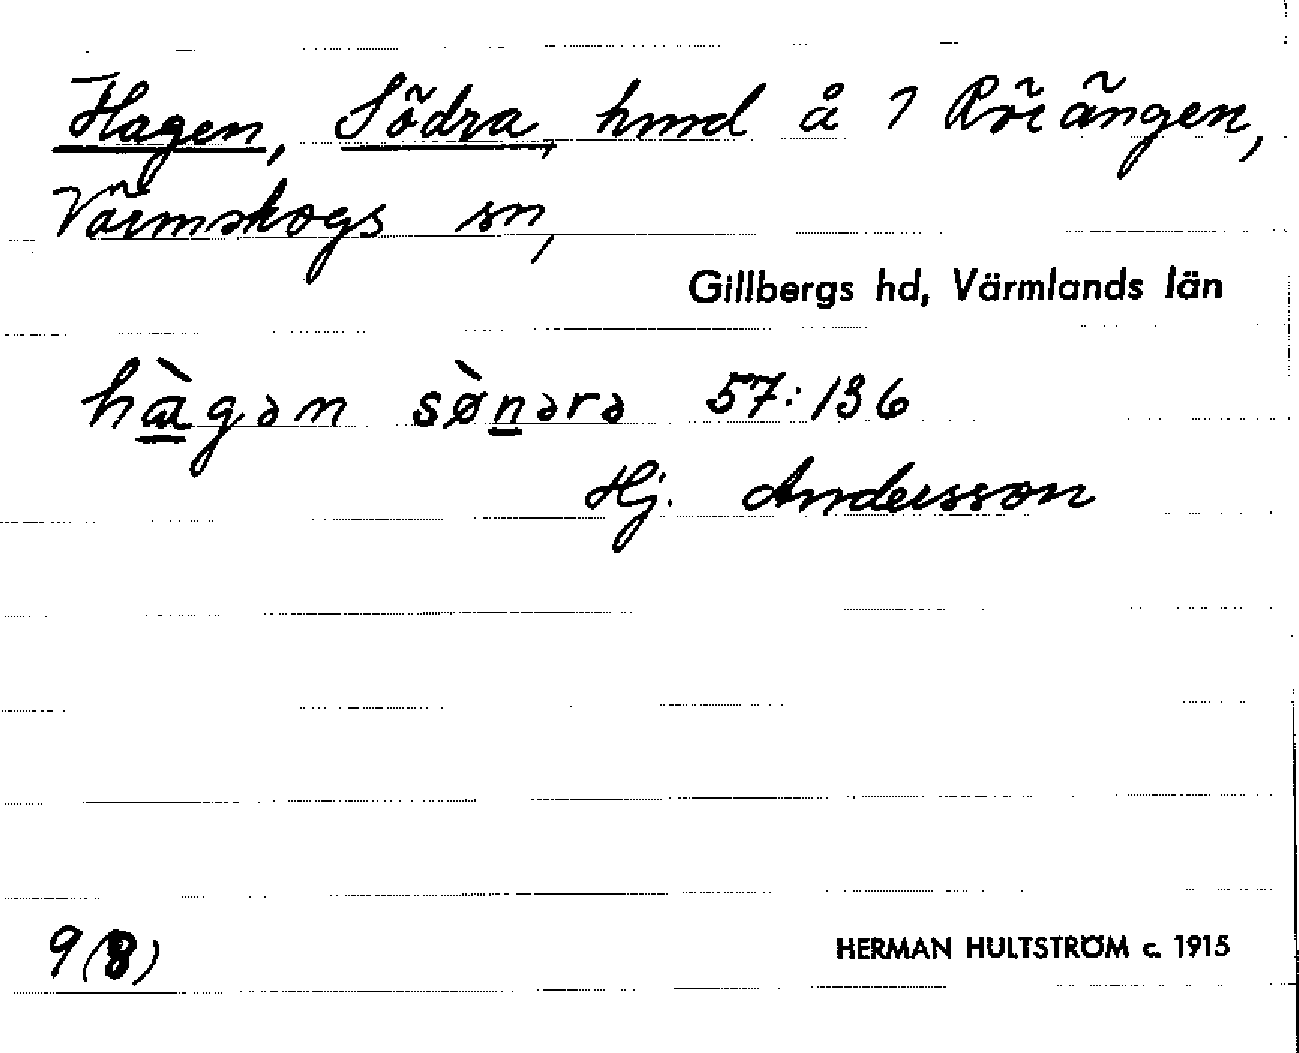 Hagen, Södra, hmd å 1 Rörängen,
Värmskogs sn,
Gillbergs hd, Värmlands län
hàgən sø̀nərə 57:136
Hj. Andersson
9(8)
HERMAN HULTSTRÖM c. 1915